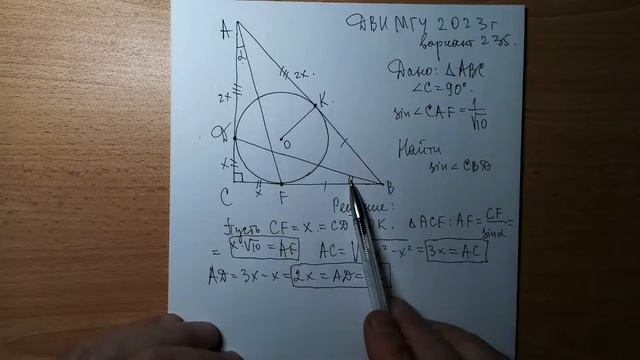 ДВИ МГУ 2023г
вариант 235.
Дано: △ABC
∠C=90°.
sin∠CAF=1/√10
Найти
sin∠CBD
A
α
2x
2x.
K
D
O
x
C
x
F
B
Решение:
Пусть CF=x=CD K. △ACF: AF=CF/sinα=
=x√10=AF AC=√ ²-x²=3x=AC
AD=3x-x=2x=AD=